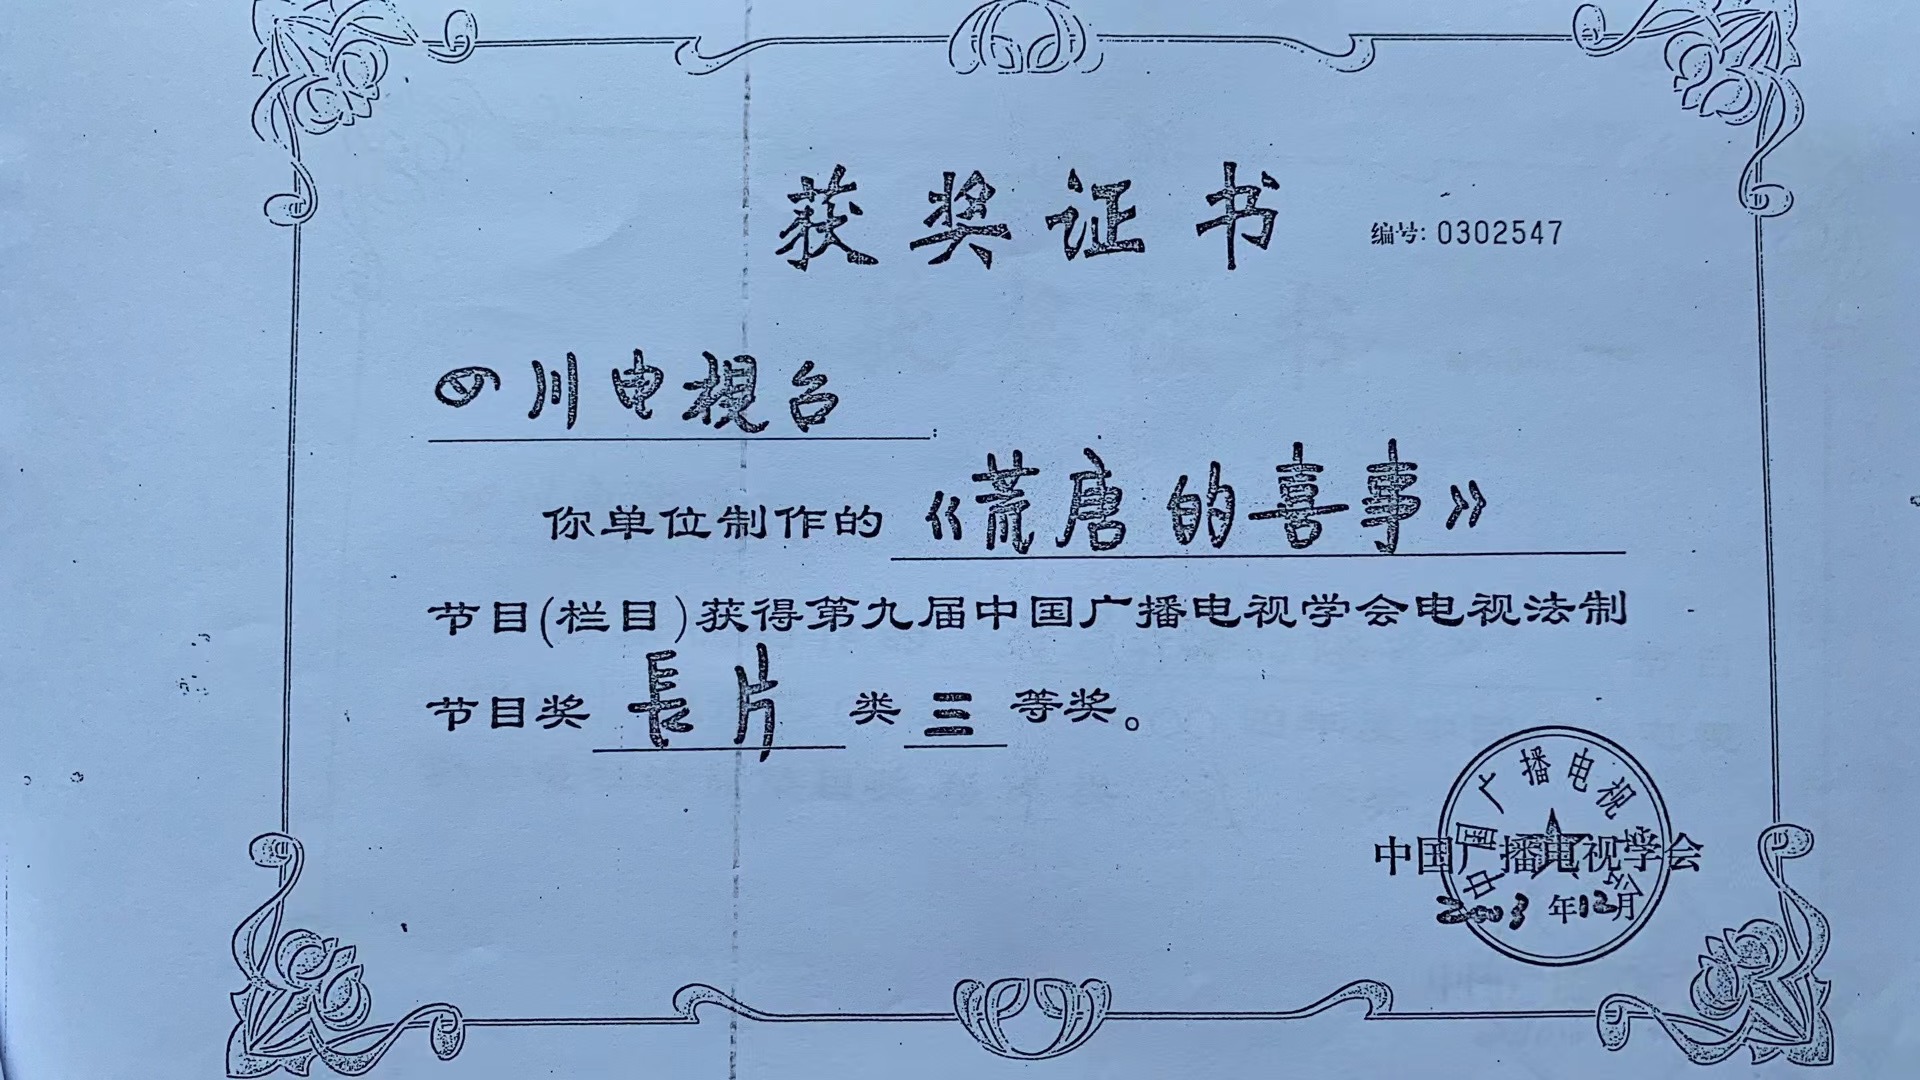 获奖证书
编号: 0302547
四川电视台:
你单位制作的《荒唐的喜事》
节目(栏目)获得第九届中国广播电视学会电视法制
节目奖長片类三等奖。
中国广播电视学会
中国广播电视学会
2003年12月